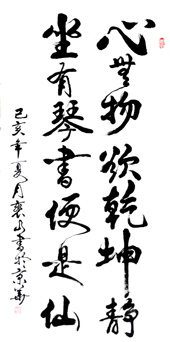 心無物欲乾坤靜
坐有琴書便是仙
己亥年夏月襄山書於京華